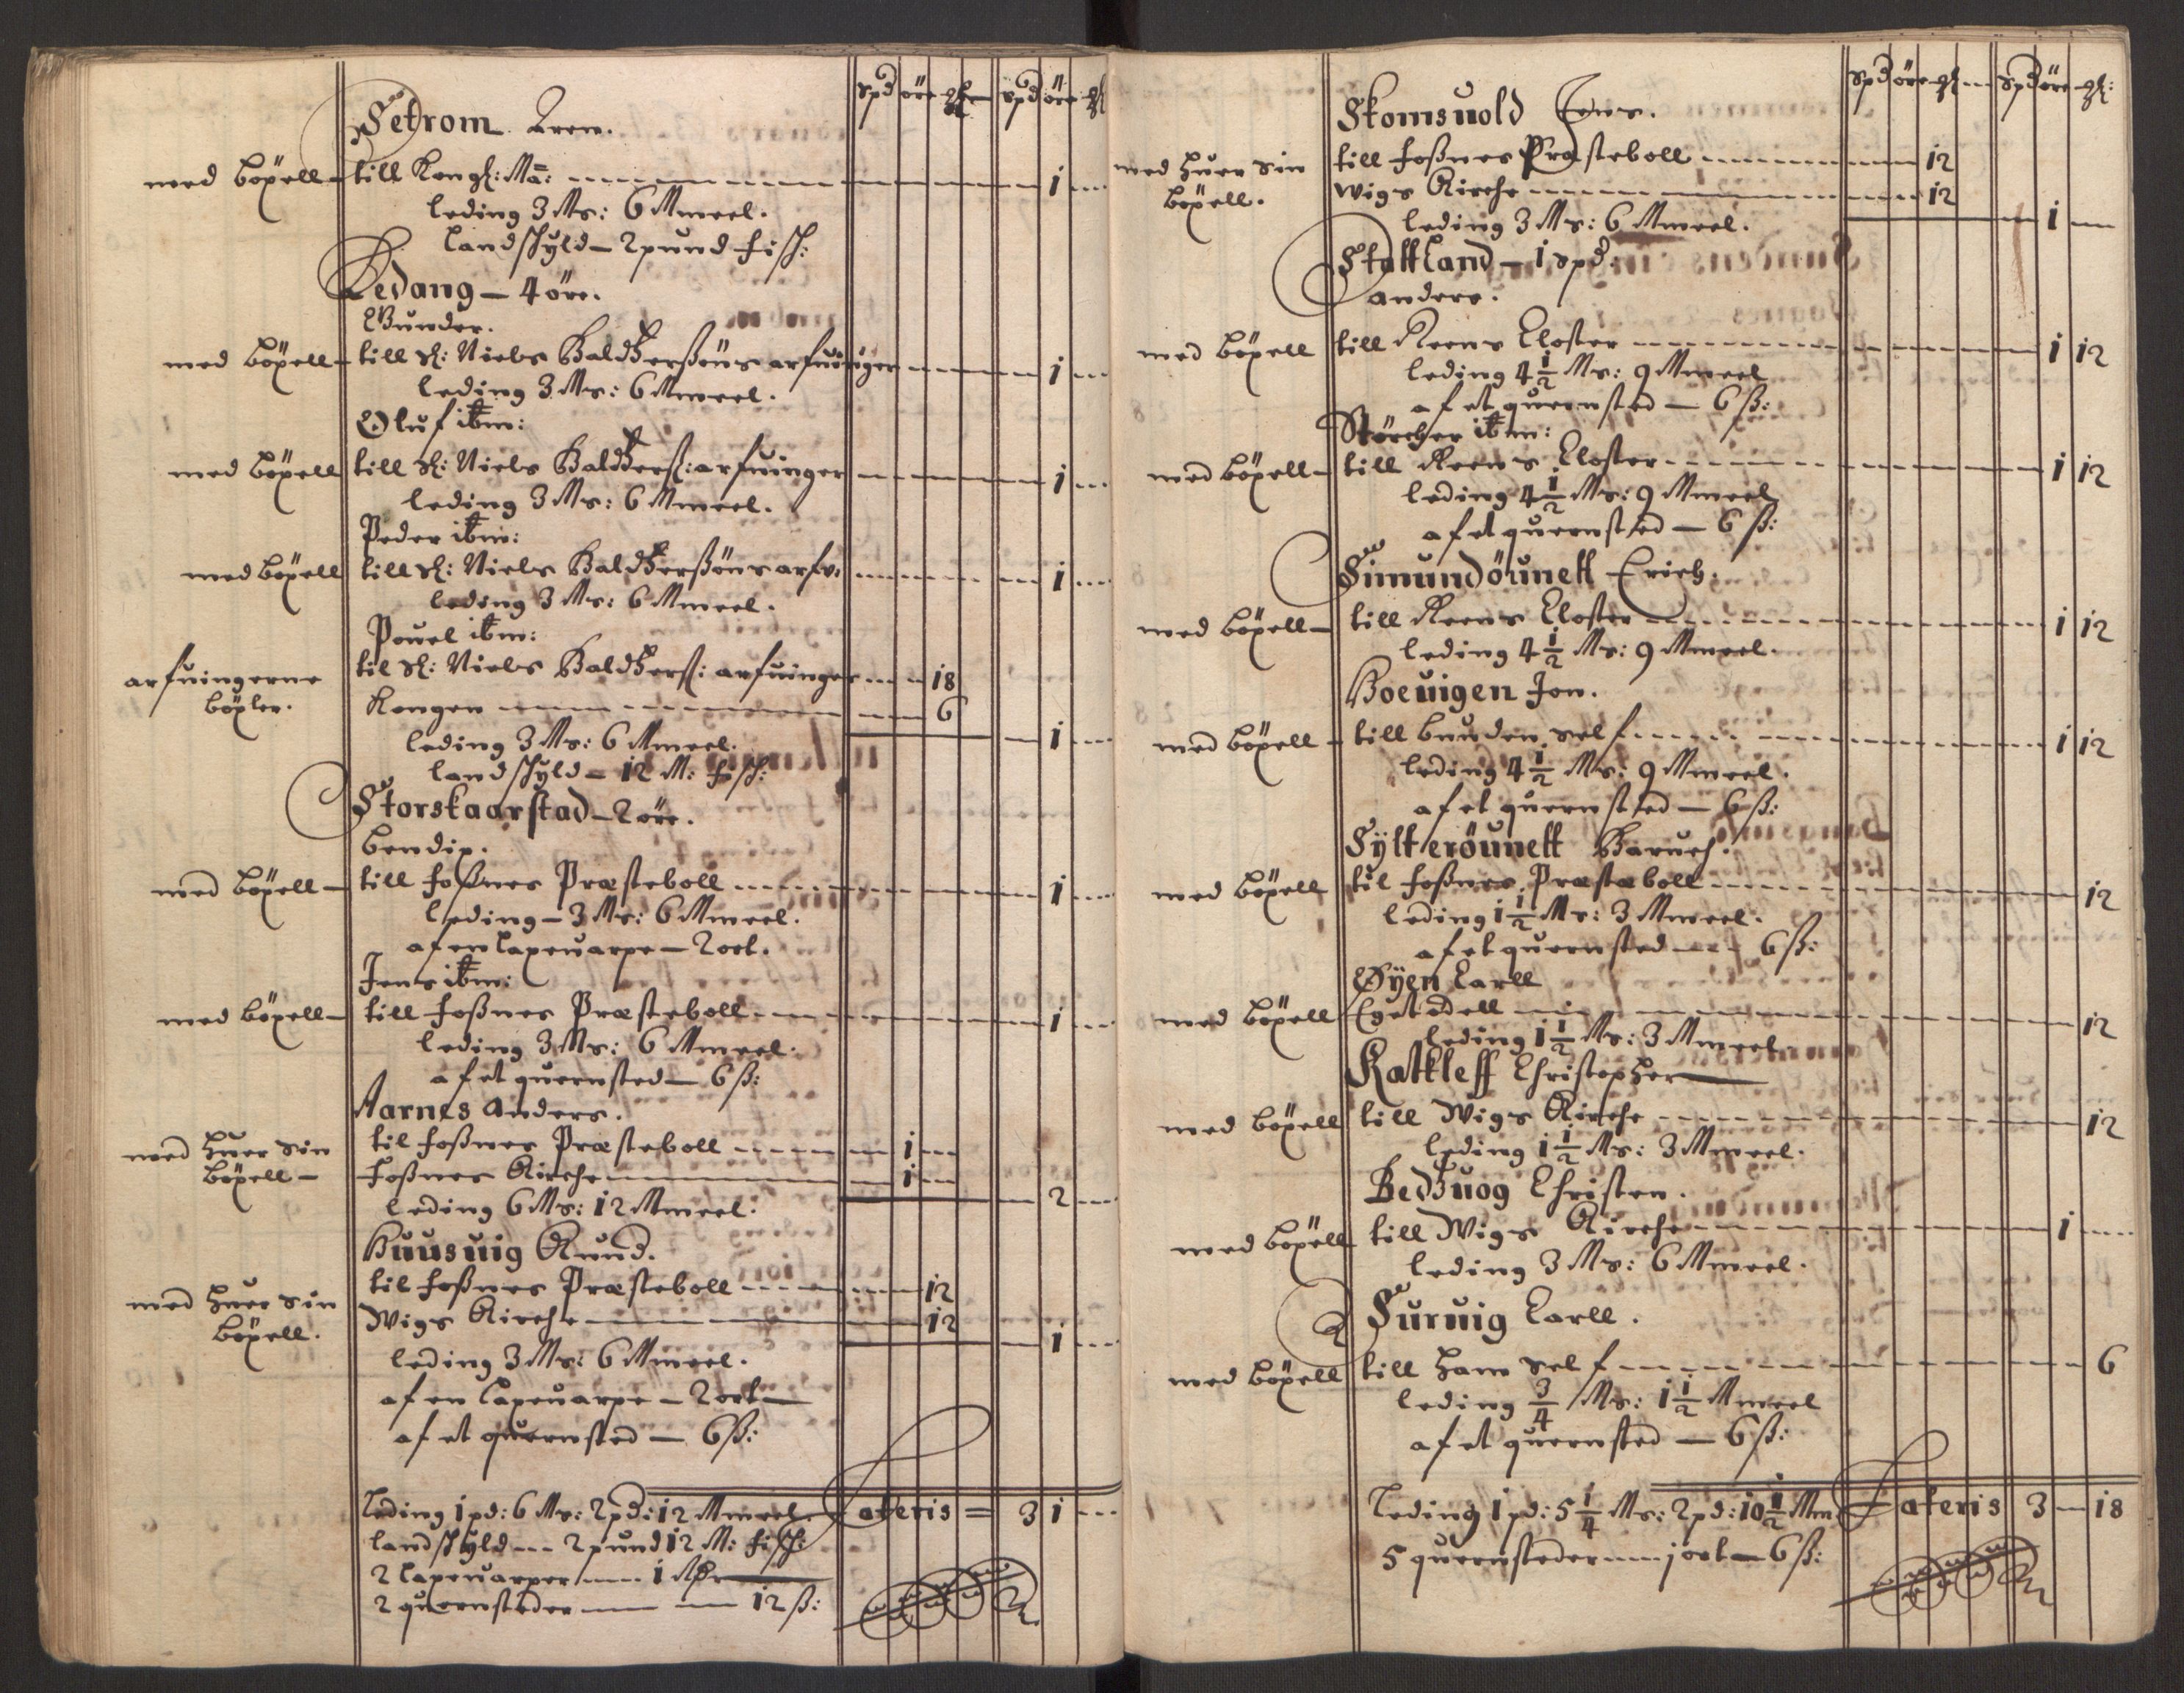 spd øre gl: spd øre gl
Setrom Aren.
med böxell till Kongl: Ma: 1
leding 3 Mr: 6 Mmeel.
landschyld 2 pund fisch:
Redang 4 øre.
Gunder.
med böxell till Sl: Niels Baldzersøns arfuinger 1
leding 3 Mr: 6 Mmeel.
Oluf ibm:
med böxell till Sl: Niels Baldzers: arfuinger 1
leding 3 Mr: 6 Mmeel.
Peder ibm:
med böxell till Sl: Niels Baldzersøns arfv: 1
leding 3 Mr: 6 Mmeel.
Pouel ibm:
arfuingerne til Sl: Niels Baldzers: arfuinger 18
böxler. Kongen 6
leding 3 Mr: 6 Mmeel. 1
landschyld 12 M: fisch:
Storskaarstad 2 øre.
Bendix.
med böxell till Foßnes Præsteboll 1
leding 3 Mr: 6 Mmeel.
af en Laxeuarpe 2 ort.
Jens ibm:
med böxell till Foßnes Præsteboll 1
leding 3 Mr: 6 Mmeel.
af et quernsted 6 ß:
Aarnes Anders.
med huer sin til Foßnes Præsteboll 1
böxell Foßnes Kirche 1
leding 6 Mr: 12 Mmeel. 2
Huusuig Knud.
med huer sin til Foßnes Præsteboll 12
böxell. Wigs Kirche 12
leding 3 Mr: 6 Mmeel. 1
af en Laxeuarpe 2 ort
af et quernsted 6 ß:
Leding 1 pd: 6 Mr: 2 pd: 12 Mmeel. Lateris 3 1
landschyld 2 pund 12 M: fisch:
2 Laxeuarper 1 Rdr
2 quernsteder 12 ß:
spd øre gl spd øre gl:
Skomsuold Jens.
med huer sin till Foßnes Præsteboll 12
böxell. Wigs Kirche 12
leding 3 Mr: 6 Mmeel. 1
Stattland 1 spd:
Anders.
med böxell till Reens Closter 1 12
leding 4 1/2 Mr: 9 Mmeel
af et quernsted 6 ß:
Störcher ibm:
med böxell till Reens Closter 1 12
leding 4 1/2 Mr: 9 Mmeel
af et quernsted 6 ß:
Simundöunett Erich.
med böxell till Reens Closter 1 12
leding 4 1/2 Mr: 9 Mmeel.
Hoeuigen Jon.
med böxell till bunden self 1 12
leding 4 1/2 Mr: 9 Mmeel.
af et quernsted 6 ß:
Sylteröunett Baruch.
med böxell til Foßnes Præsteboll 12
leding 1 1/2 Mr: 3 Mmeel.
af et quernsted 6 ß:
Øyen Carll
med böxell Eget odell 12
leding 1 1/2 Mr: 3 Mmeel
Kattleff Christopher
med böxell till Wigs Kirche 12
leding 1 1/2 Mr: 3 Mmeel.
Bedzuog Christen.
med böxell till Wigs Kirche 1
leding 3 Mr: 6 Mmeel.
Suruig Carll.
med böxell till ham self 6
leding 3/4 Mr: 1 1/2 Mmeel
af et quernsted 6 ß:
Leding 1 pd: 5 1/4 Mr: 2 pd: 10 1/2 Mm Lateris 3 18
5 quernsteder 1 ort 6 ß: